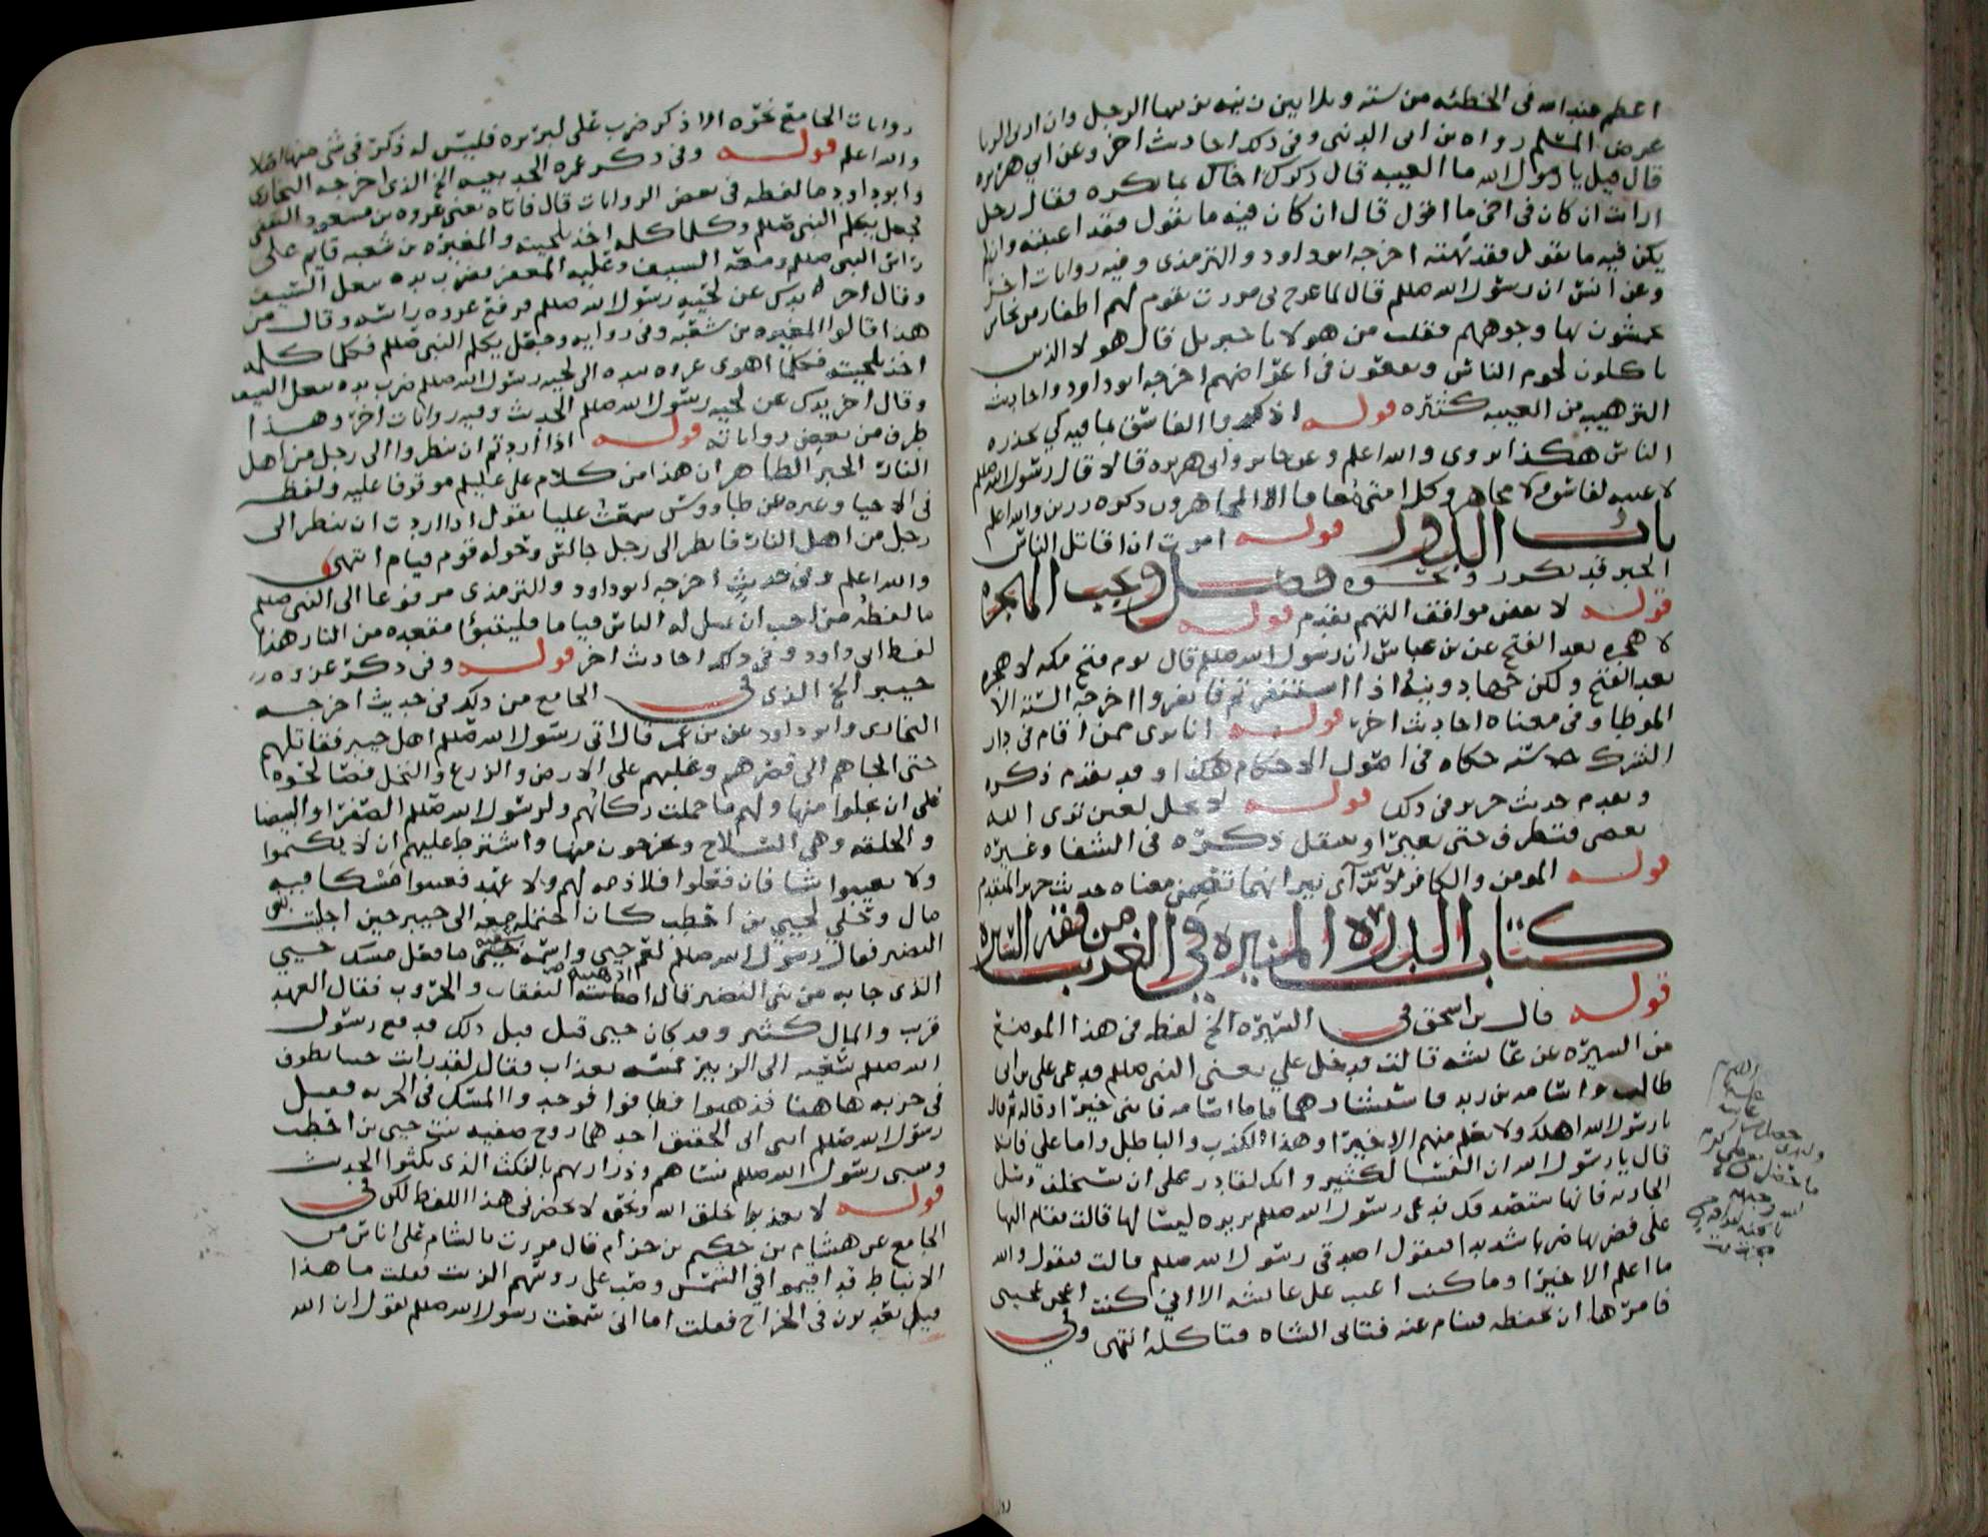 اعظم عند الله فى الخطئه من سته وثلاثين زنيه يزنيها الرجل وان اربى الربا
عرض المسلم رواه بن ابى الدنيا وفى ذلك احاديث اخر وعن ابي هريره
قال قيل يا رسول الله ما الغيبه قال ذكرك اخاك بما يكره فقال رجل
ارايت ان كان فى اخى ما اقول قال ان كان فيه ما تقول فقد اغتبته وان لم
يكن فيه ما تقول فقد بهته اخرجه ابو داود والترمذى وفيه روايات اخر
وعن انس ان رسول الله صلعم قال لما عرج بى مررت بقوم لهم اظفار من نحاس
يخمشون بها وجوههم فقلت من هولا يا جبريل قال هولا الذين
ياكلون لحوم الناس ويقعون فى اعراضهم اخرجه ابو داود واحاديث
الترهيب من الغيبه كثيره قوله اذكروا الفاسق بما فيه كي يحذره
الناس هكذا روى والله اعلم وعن جابر وابى هريره قالا قال رسول الله صلعم
لا غيبه لفاسق ولا مجاهر وكل امتى معافا الا المجاهرون ذكره رزين والله اعلم
باب الدور قوله امرت ان اقاتل الناس
الخبر قد تكرر ونحوه فصل وتجب الهجره
قوله لا بعض مواقف التهم تقدم قوله
لا هجره بعد الفتح عن بن عباس ان رسول الله صلعم قال يوم فتح مكه لا هجره
بعد الفتح ولكن جهاد ونيه اذا استنفرتم فانفروا اخرجه السته الا
الموطا وفى معناه احاديث اخر قوله انا برى ممن اقام فى دار
الشرك حكاه فى اصول الاحكام هكذا وقد تقدم ذكره
وتقدم حديث جرير فى ذلك قوله لا يحل لعين ترى الله
يعصى فتطرف حتى تغير او تنتقل ذكره فى الشفا وغيره
قوله المومن والكافر لا تتراآى نيرانهما تضمن معناه حديث جرير المتقدم
كتاب الدره المنيره فى الغريب من فقه السيره
قوله قال بن اسحق فى السيره الخ لفظه فى هذا الموضع
من السيره عن عائشه قالت فدخل علي يعنى النبى صلعم فدعى على بن ابى
طالب واسامه بن زيد فاستشارهما فاما اسامه فاثنى خيرا وقاله ثم قال
يا رسول الله اهلك ولا نعلم منهم الا خيرا وهذا الكذب والباطل واما علي فانه
قال يا رسول الله ان النسا لكثير وانك لقادر على ان تستخلف وسل
الجاريه فانها ستصدقك فدعى رسول الله صلعم بريره ليسالها قالت فقام اليها
على فضربها ضربا شديدا فيقول اصدقى رسول الله صلعم قالت فتقول والله
ما اعلم الا خيرا وما كنت اعيب على عائشه الا اني كنت اعجن عجينى
فامرها ان تحفظه فتنام عنه فتاتى الشاه فتاكله انتهى وفي
روايات الجامع نحوه الا ذكر ضرب على لبريره فليس له ذكر فى شى منها اصلا
والله اعلم قوله وفى ذكر عمره الحديبيه الخ الذى اخرجه البخارى
وابو داود ما لفظه فى بعض الروايات قال فاتاه يعنى عروه بن مسعود الثقفى
فجعل يكلم النبى صلعم وكلما كلمه اخذ بلحيته والمغيره بن شعبه قايم على
راس النبى صلعم ومعه السيف وعليه المغفر فضرب يده بنعل السيف
وقال اخر يدك عن لحية رسول الله صلعم فرفع عروه راسه وقال من
هذا قالوا المغيره بن شعبه وفى روايه وجعل يكلم النبى صلعم فكلما كلمه
اخذ بلحيته فكلما اهوى عروه بيده الى لحيه رسول الله صلعم ضرب يده بنعل السيف
وقال اخر يدك عن لحيه رسول الله صلعم الحديث وفيه روايات اخر وهذا
طرف من بعض رواياته قوله اذا اردتم ان تنظروا الى رجل من اهل
النار الخبر الظاهر ان هذا من كلام على عليلم موقوفا عليه ولفظه
فى الاحيا وغيره عن طاووس سمعت عليا يقول اذا اردت ان تنظر الى
رجل من اهل النار فانظر الى رجل جالس وحوله قوم قيام انتهى
والله اعلم وفى حديث اخرجه ابو داود والترمذى مرفوعا الى النبى صلعم
ما لفظه من احب ان يمثل له الناس قياما فليتبوا مقعده من النار هذا
لفظ ابى داود وفى ذلك احاديث اخر قوله وفى ذكر غزوه
خيبر الخ الذى فى الجامع من ذلك فى حديث اخرجه
البخارى وابو داود عن بن عمر قال اتى رسول الله صلعم اهل خيبر فقاتلهم
حتى الجاهم الى قصرهم وغلبهم على الارض والزرع والنخل فصالحوه
على ان يجلوا منها ولهم ما حملت ركابهم ولرسول الله صلعم الصفرا والبيضا
والحلقه وهى السلاح ويخرجون منها واشترط عليهم ان لا يكتموا
ولا يغيبوا شيا فان فعلوا فلا ذمه لهم ولا عهد فغيبوا مسكا فيه
مال وحلي لحيي بن اخطب كان احتمله معه الى خيبر حين اجليت
النضير فقال رسول الله صلعم لعم حيي واسمه سعيه ما فعل مسك حيي
الذى جا به من بنى النضير قال اذهبته النفقات والحروب فقال العهد
قريب والمال كثير وقد كان حيى قتل قبل ذلك فدفع رسول
الله صلعم سعيه الى الزبير فمسه بعذاب فقال لقد رايت حييا يطوف
فى خربه هاهنا فذهبوا فطافوا فوجدوا المسك فى الخربه فقتل
رسول الله صلعم ابنى ابى الحقيق احدهما زوج صفيه بنت حيى بن اخطب
وسبى رسول الله صلعم نساهم وذراريهم بالنكث الذى نكثوا الحديث
قوله لا تعذبوا خلق الله ونحوه لا يحضرنى هذا اللفظ لكن فى
الجامع عن هشام بن حكيم بن حزام قال مررت بالشام على اناس من
الانباط قد اقيموا في الشمس وصب على روسهم الزيت فقلت ما هذا
قيل يعذبون فى الخراج فقلت اما انى سمعت رسول الله صلعم يقول ان الله